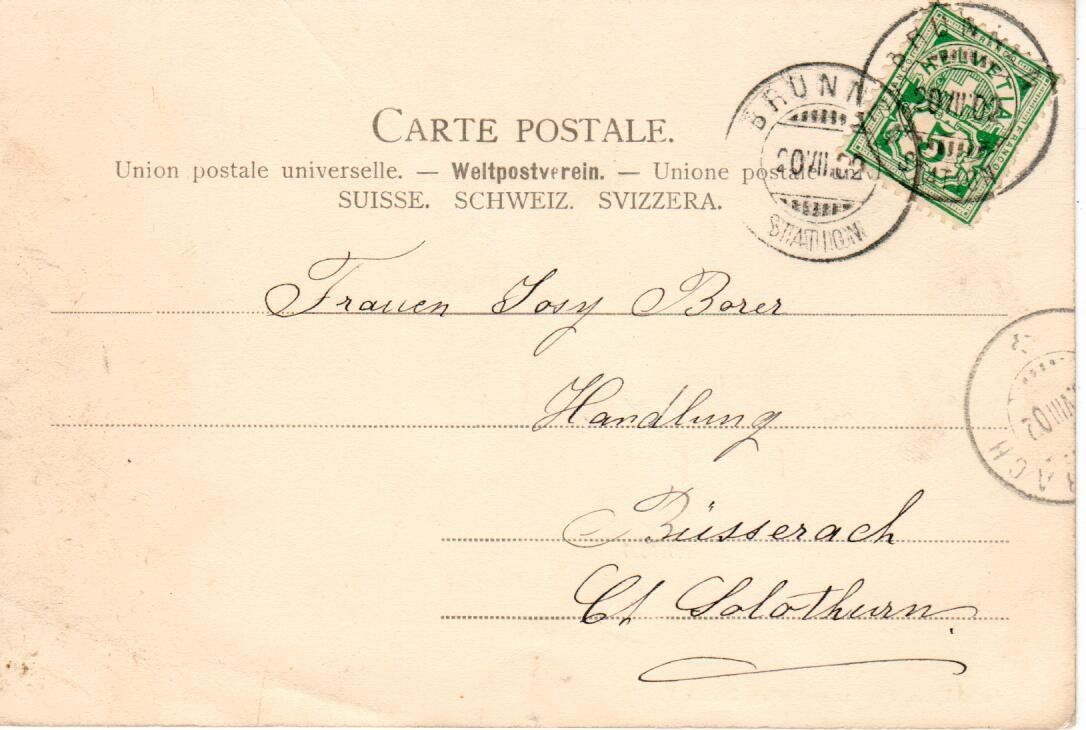 CARTE POSTALE.
Union postale universelle. — Weltpostverein. — Unione postale
SUISSE. SCHWEIZ. SVIZZERA.
BRUNN
STATION
HELVETIA
5
Frauen Josy Borer
Handlung
Büsserach
Ct Solothurn